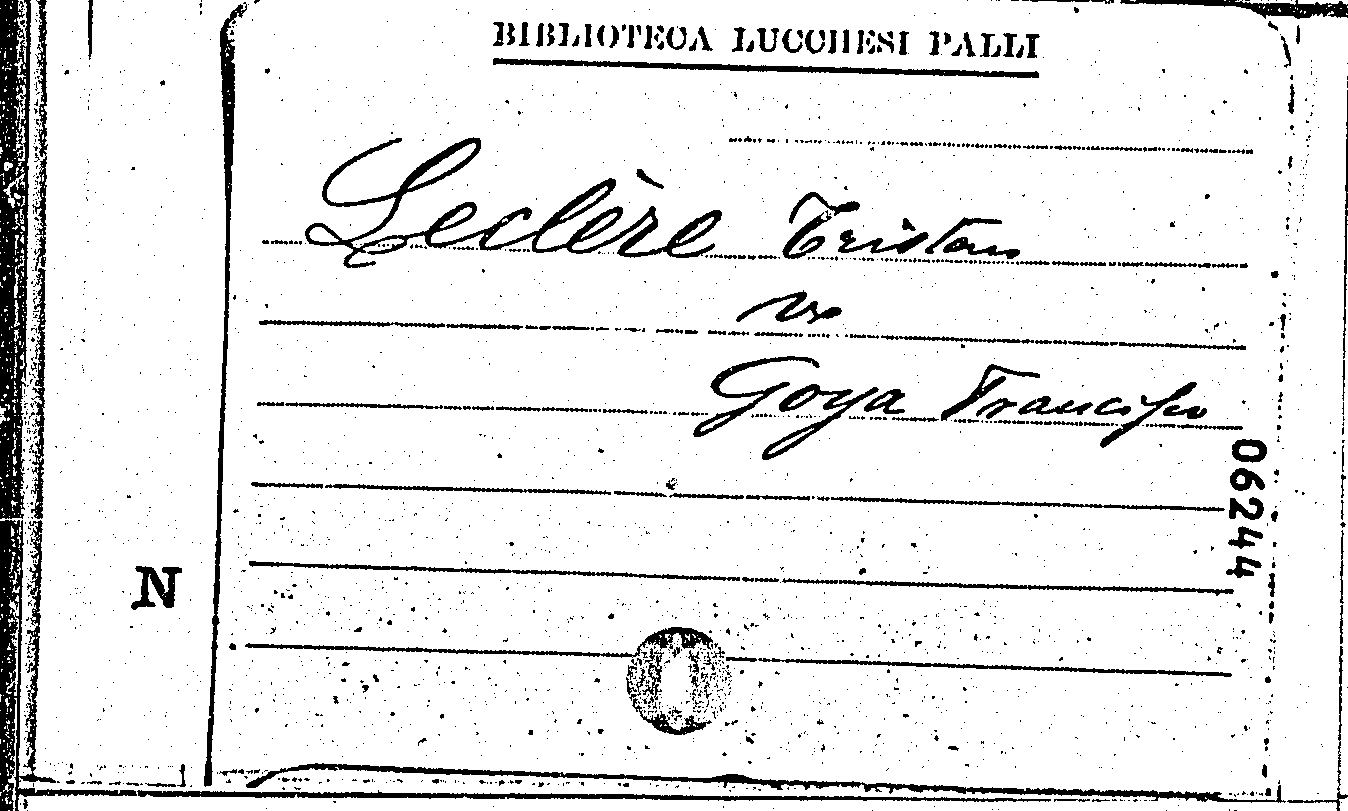 BIBLIOTECA LUCCHESI PALLI
Leclère Tristan
Goya Francisco
06244
N